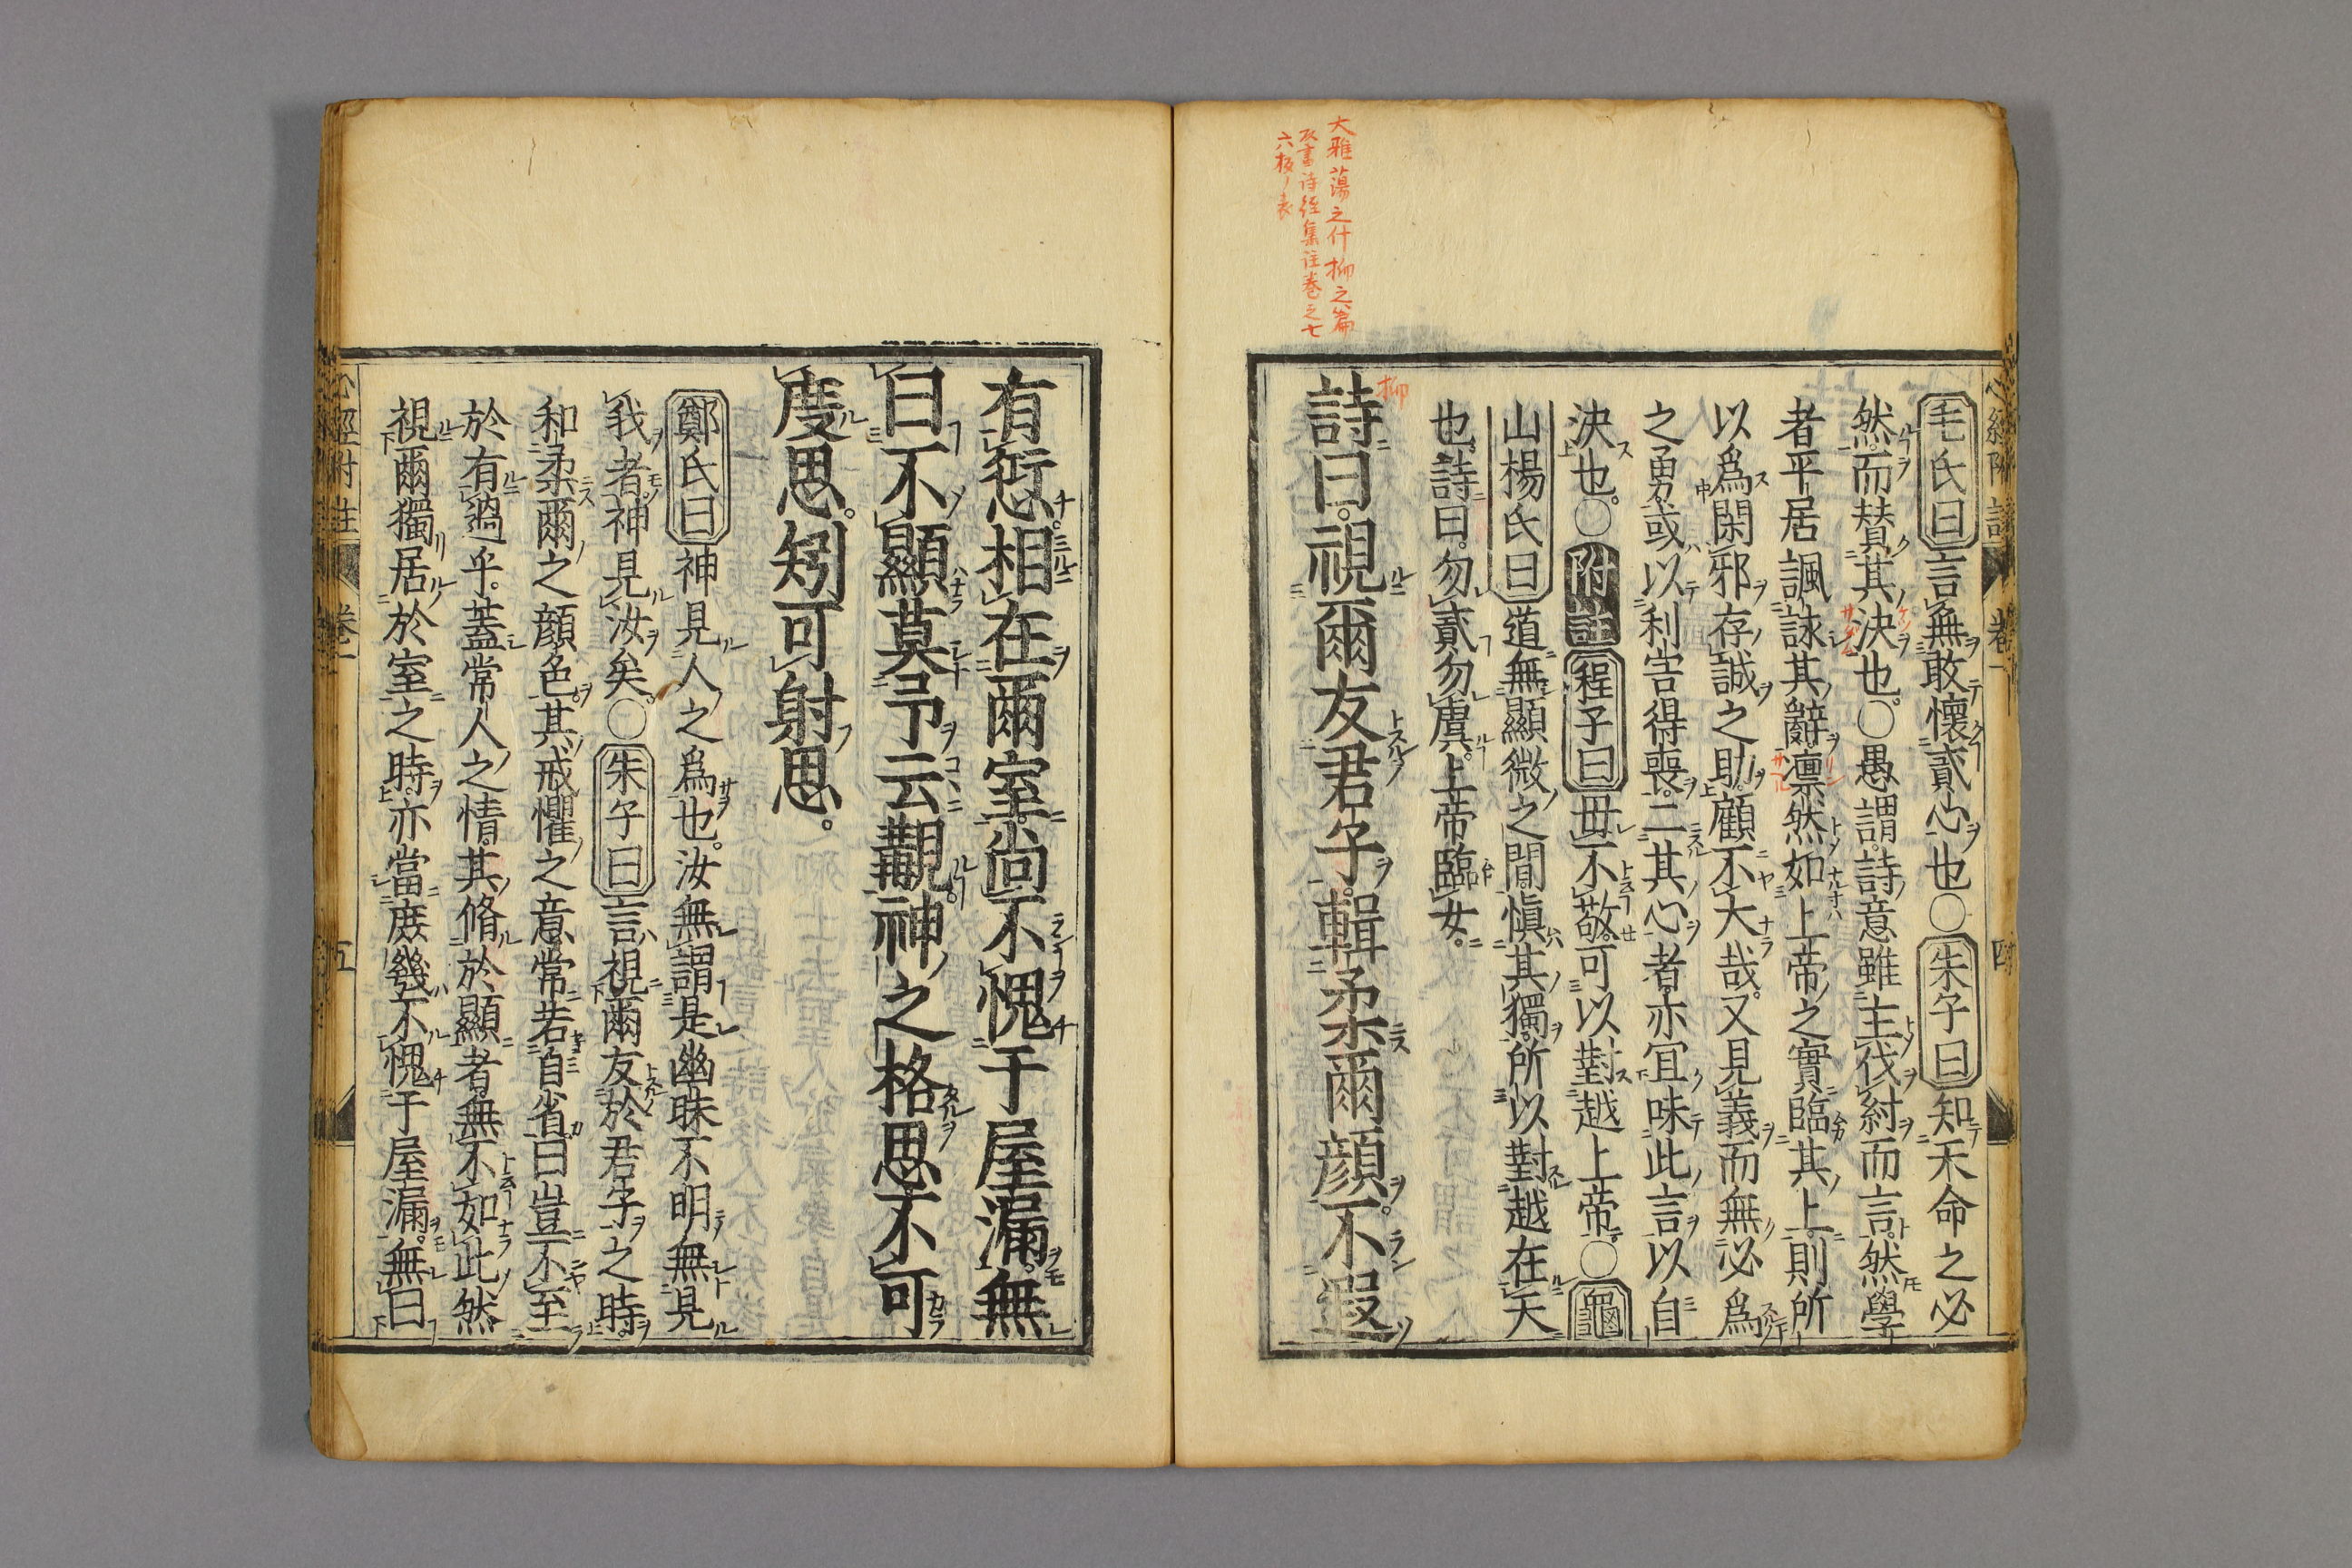 大雅蕩之什抑之篇
改書詩經集註卷之七
六板ノ表
心經附註 卷一 四
毛氏曰言無敢懷貳心也○朱子曰知天命之必
然而賛其決也○愚謂詩意雖主伐紂而言然學
者平居諷詠其辭凛然如上帝之實臨其上則所
以爲閑邪存誠之助顧不大哉又見義而無必爲
之勇或以利害得喪二其心者亦宜味此言以自
決也○附註程子曰毋不敬可以對越上帝○龜
山楊氏曰道無顯微之間愼其獨所以對越在天
也詩曰勿貳勿虞上帝臨女
抑
詩曰視爾友君子輯柔爾顏不遐
有愆相在爾室尚不愧于屋漏無
曰不顯莫予云覯神之格思不可
度思矧可射思
鄭氏曰神見人之爲也汝無謂是幽昧不明無見
我者神見汝矣○朱子曰言視爾友於君子之時
和柔爾之顏色其戒懼之意常若自省曰豈不至
於有過乎蓋常人之情其脩於顯者無不如此然
視爾獨居於室之時亦當庶幾不愧于屋漏無曰
心經附註 卷一 五